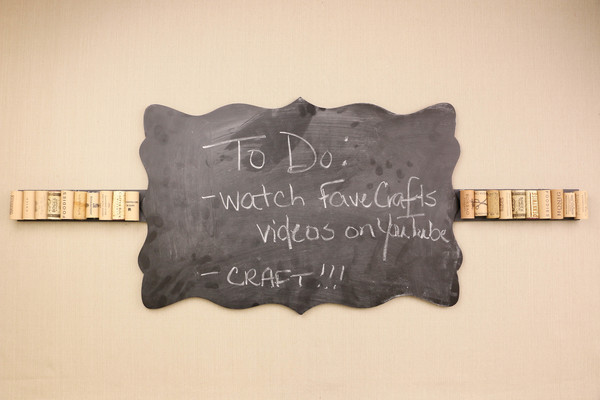 To Do:
- watch FaveCrafts
videos on YouTube
- CRAFT!!!